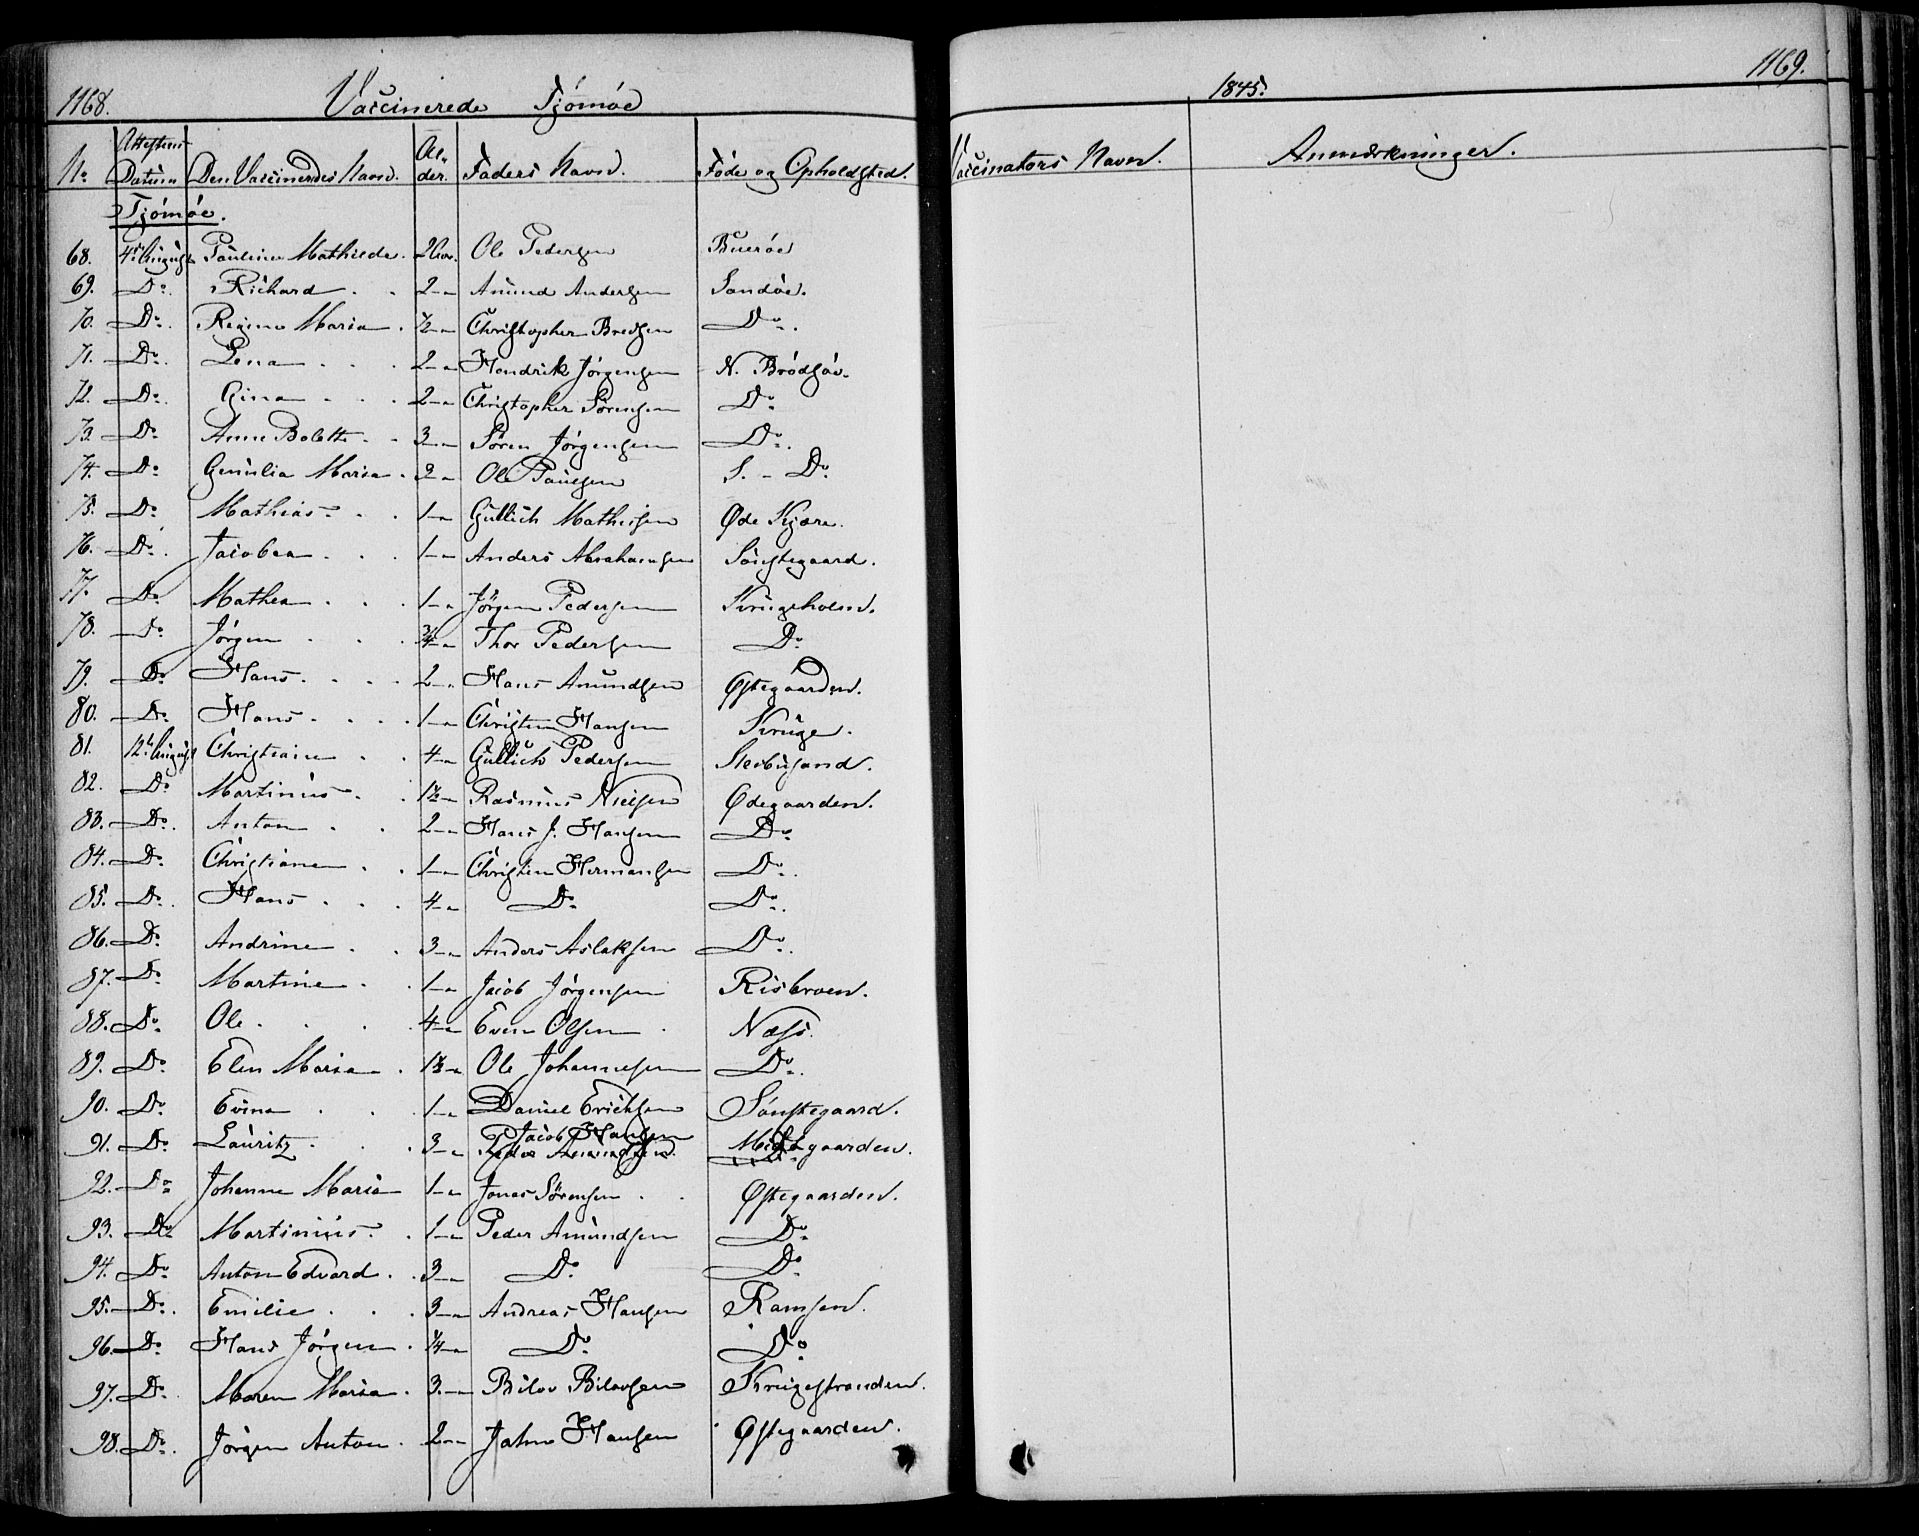 1168. Vaccinerede Tjömöe
No Attestens Datum Den Vaccineredes Navn. Alder. Faders Navn. Föde og Opholdsted.
Tjömöe.
68. 4de August Pauline Mathilde. 2 Ole Pedersen Bueröe
69. Do. Richard . . 2 — Amund Andersen Sandöe.
70. Do. Regine Maria . ½ — Christopher Bredsen Do.
71. Do. Lena . . . 2 — Hendrik Jörgensen N.
72. Do. Gina . . . 2 — Christopher Sörensen Do
73. Do Anne Bolette . . 3 — Sören Jörgensen Do.
74. Do Maria . 2 — Ole Paulsen S. - Do.
75. Do. Mathias . . 1 — Gullich Mathisen Øde Kjære.
76. Do. Jacobea . . . 1 — Anders Abrahamsen Sönstegaard.
77. Do Mathea . . . 1 — Jörgen Pedersen Krugeholm.
78. Do. Jörgen . . . ¾ — Thor Pedersen Do
79. Do Hans . . . . 2 — Hans Amundsen Østegaarden.
80. Do. Hans . . . . 1 — Christen Hansen Kruge.
81. 12te August Christiane . . 4 — Gullich Pedersen
82. Do Martinius . . 1½ — Rasmus Nielsen Ødegaarden.
83. Do. Anton . . 2 — Hans J. Hansen Do
84. Do. Christiane . . 1 — Christen Hermansen Do.
85. Do. Hans . . . 4 — Do Do.
86. Do Andrine . . 3 — Anders Aslaksen Do.
87. Do. Martine . . 1 — Jacob Jörgensen Risbroen.
88. Do. Ole . . . . 4 — Even Olsen . Næss.
89. Do. Elen Maria . 1½ — Ole Johannesen Do.
90. Do. Evina . . . 1 — Daniel Erichsen Sönstegaard.
91. Do. Lauritz . . . 3 — Jacob Hansen Midtgaarden.
92. Do Johanne Maria 1 — Jonas Sörensen . . Østegaarden.
93. Do Martinius . . 1 — Peder Amundsen Do
94. Do Anton Edvard . . 3 — Do Do
95. Do. Emilie . . . 3 — Andreas Hansen Ramsen.
96. Do. Hans Jörgen . ¼ — Do Do
97. Do. Maren Maria . 3 — Bilov Bilovsen Krugestranden.
98. Do. Jörgen Anton . 2 — John Hansen Østegaarden.
1845. 1169.
Vaccinators Navn. Anmærkninger.